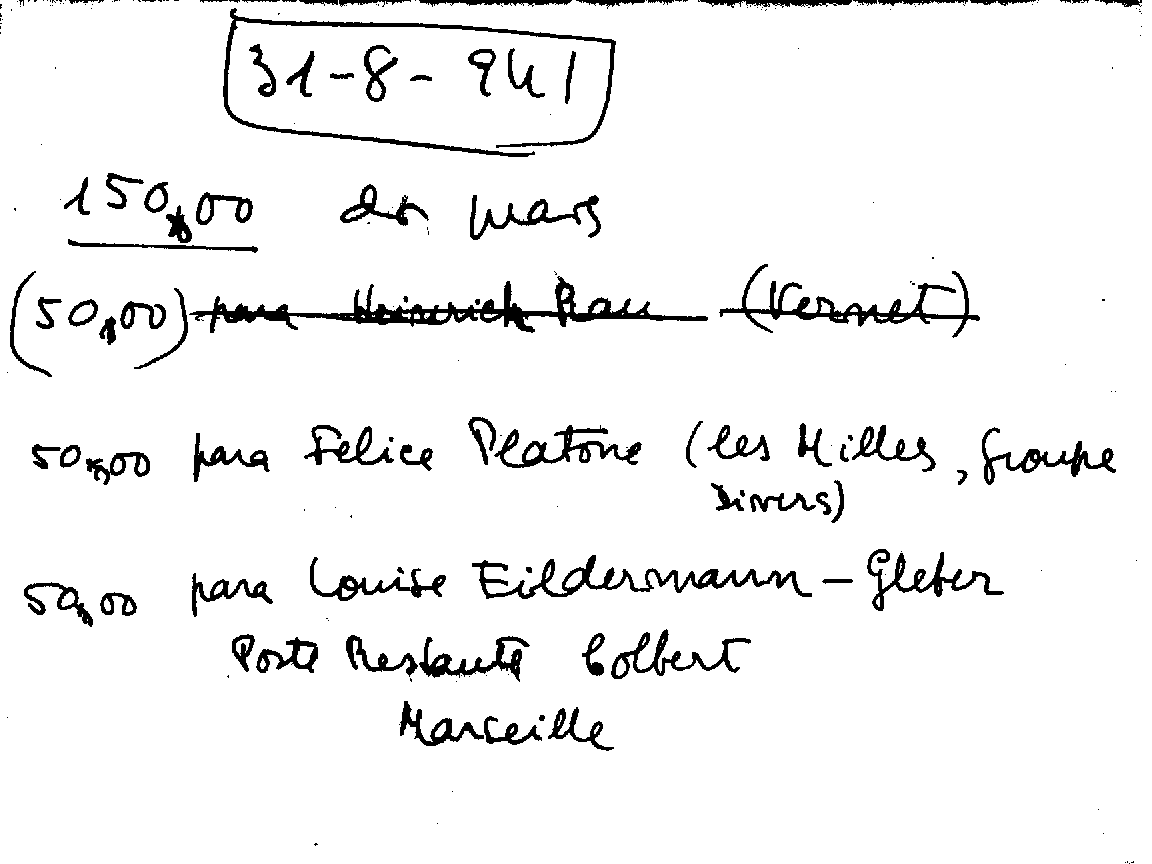 31-8-941
150,00 dr mars
(50,00) para Heinrich Rau (Vernet)
50,00 para Felice Platone (les Milles, Groupe
Divers)
50,00 para Louise Eildermann - Gleber
Poste Restante Colbert
Marseille